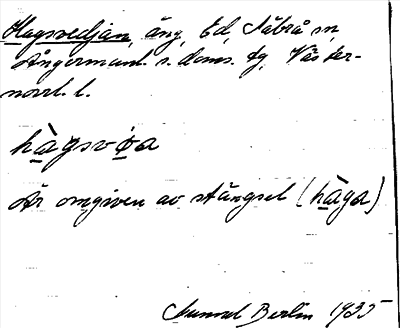 Hagsvedjan, äng, Ed, Säbrå sn,
Ångermanl. s. doms. tg, Väster-
norrl. l.
hàgsvòa
Är omgiven av stängsel (hàga)
Berlin 1935